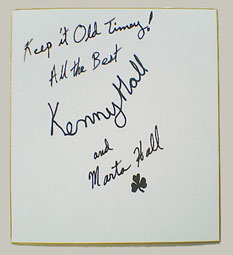 Keep it Old Timey!
All the Best
Kenny Hall
and
Marta Hall